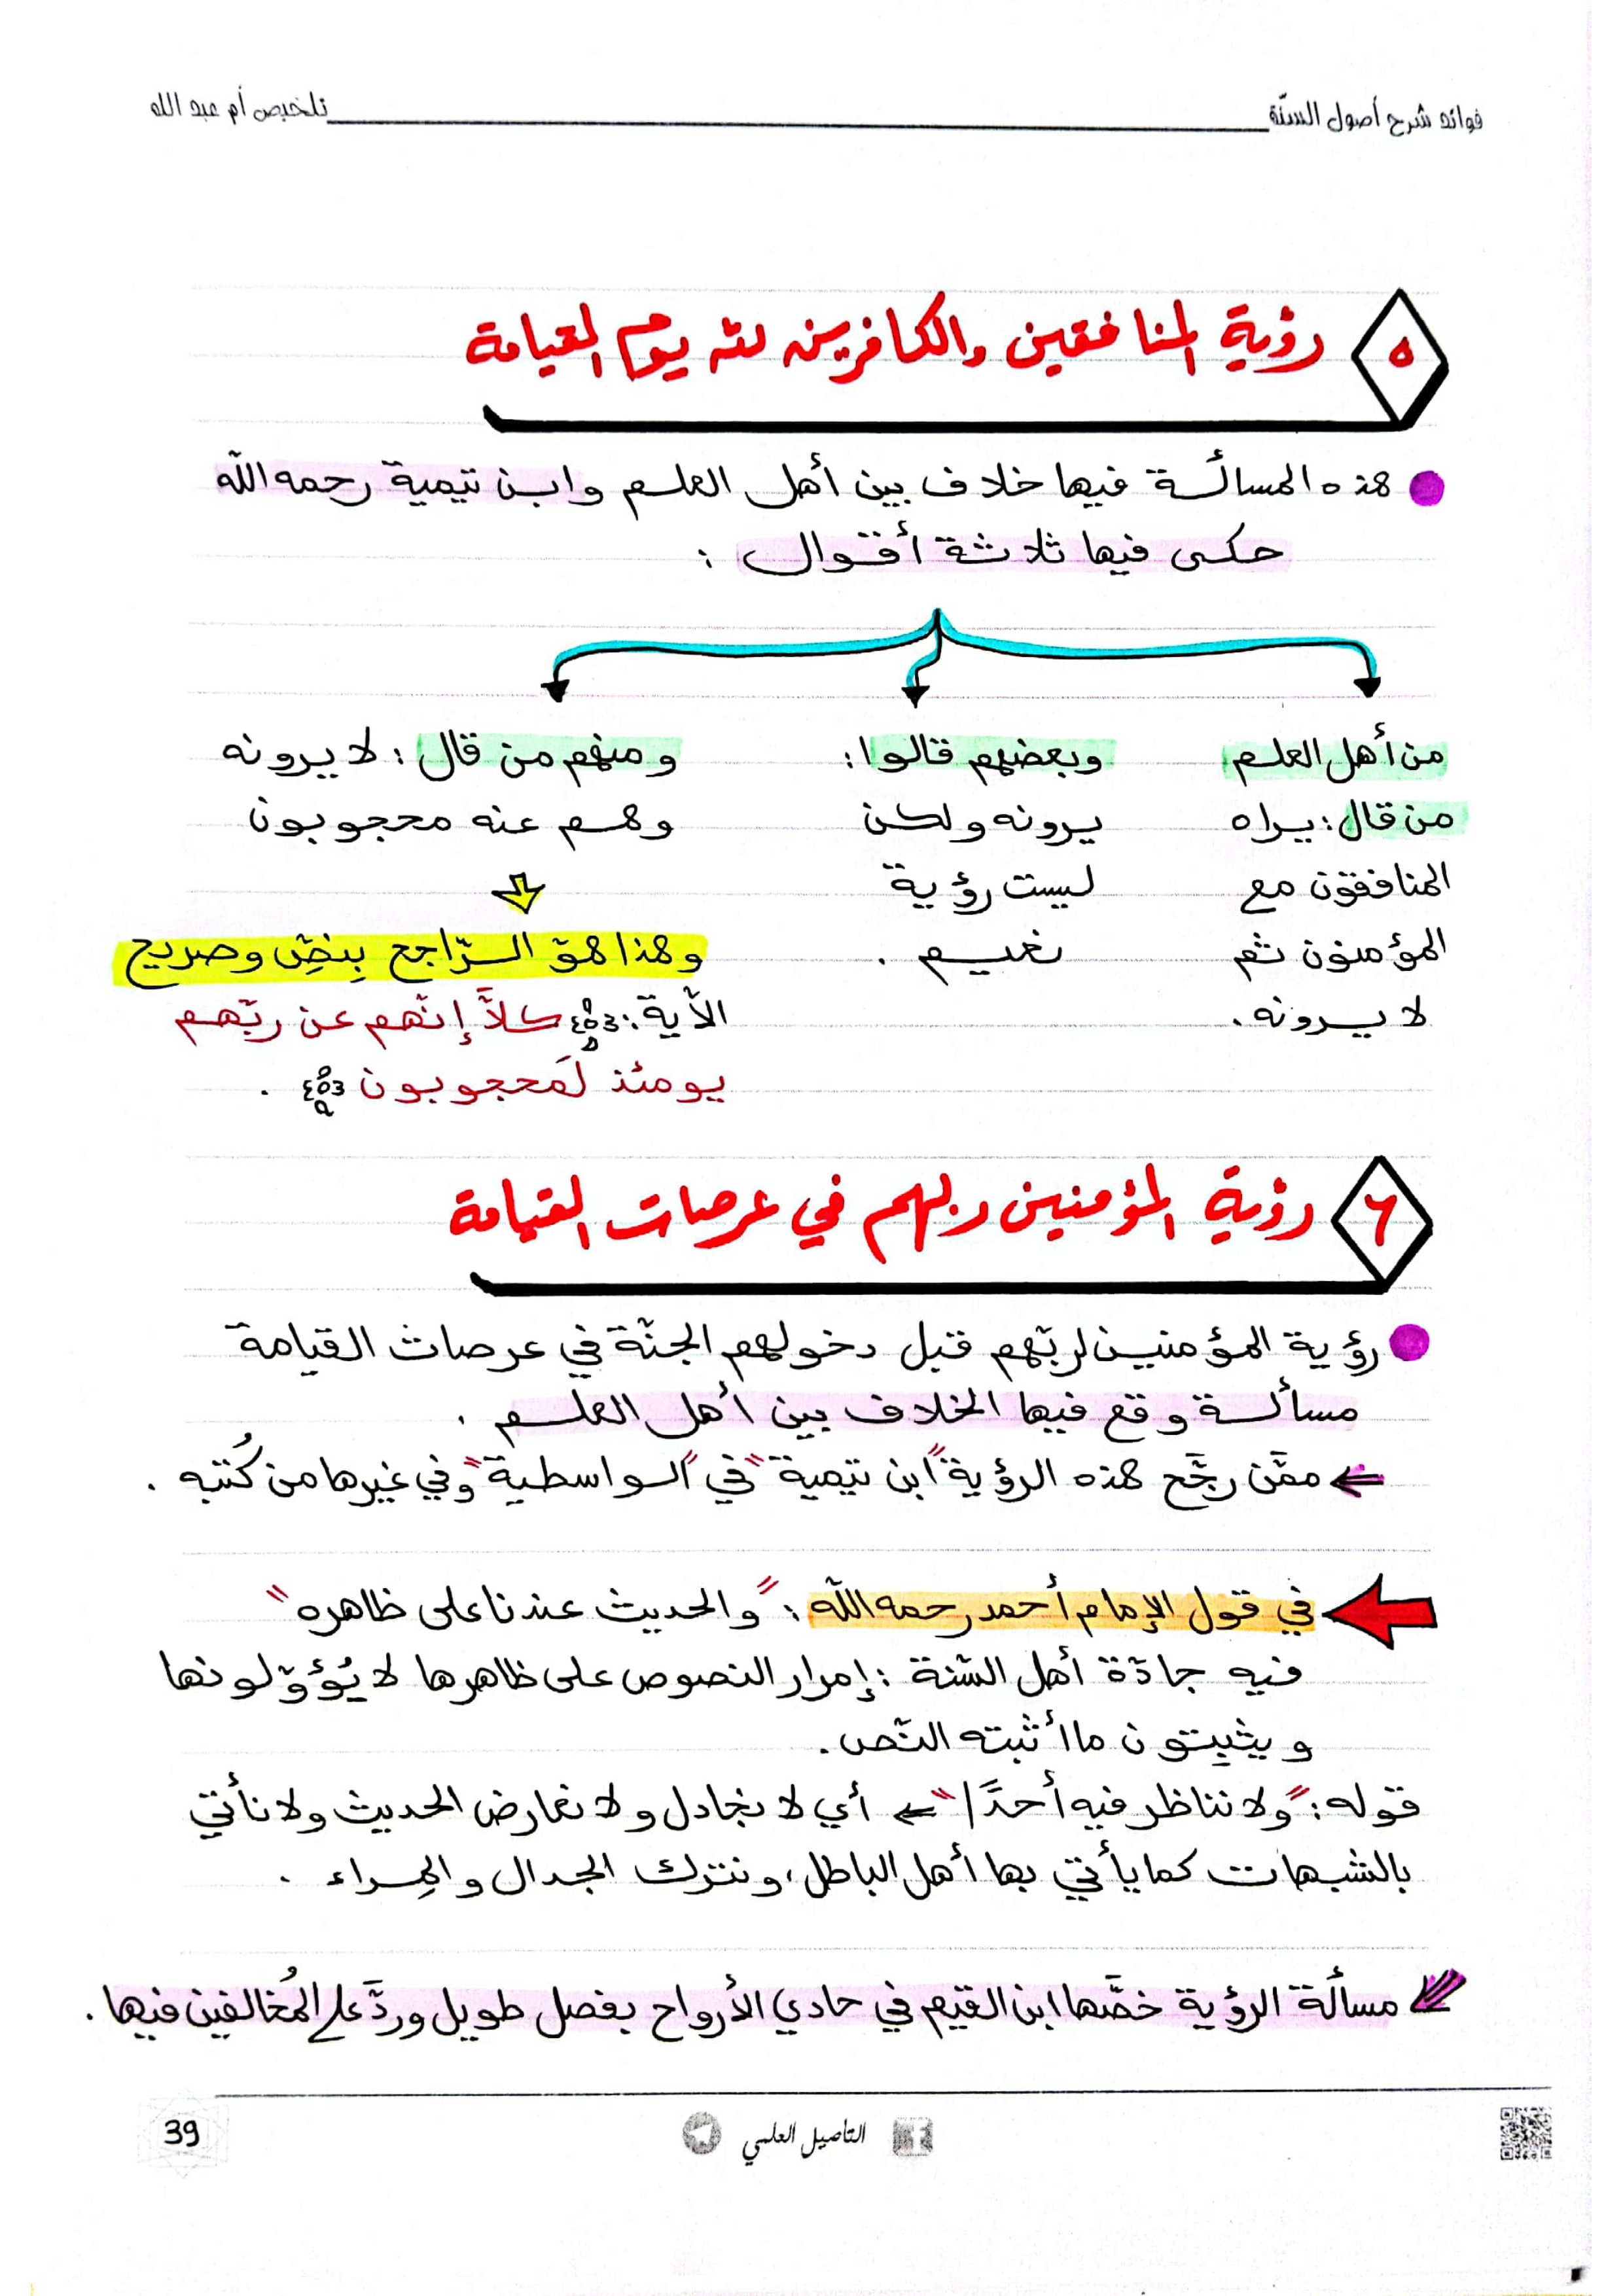 فوائد شرح أصول السنّة
تلخيص أم عبد الله
٥ رؤية المنافقين والكافرين لله يوم القيامة
هذه المسألة فيها خلاف بين أهل العلم وابن تيمية رحمه الله
حكى فيها ثلاثة أقوال :
من أهل العلم
من قال : يراه
المنافقون مع
المؤمنون ثم
لا يرونه .
وبعضهم قالوا :
يرونه ولكن
ليست رؤية
نعيم .
ومنهم من قال : لا يرونه
وهم عنه محجوبون
وهذا هو الرّاجح بِنصِّ وصريح
الآية : كلاَّ إنّهم عن ربّهم
يومئذ لَمحجوبون .
٦ رؤية المؤمنين ربهم في عرصات القيامة
رؤية المؤمنين لربّهم قبل دخولهم الجنّة في عرصات القيامة
مسألة وقع فيها الخلاف بين أهل العلم .
← ممّن رجَّح هذه الرؤية "ابن تيمية" في "الواسطية" وفي غيرها من كُتبه .
في قول الإمام أحمد رحمه الله : "والحديث عندنا على ظاهره"
فيه جادّة أهل السّنة : إمرار النصوص على ظاهرها لا يُؤوّلونها
ويثبِتون ما أثبته النّص .
قوله : "ولا نناظر فيه أحدًا" ← أي لا نجادل ولا نعارض الحديث ولا نأتي
بالشبهات كما يأتي بها أهل الباطل ، ونترك الجدال والمِراء .
مسألة الرؤية خصَّها ابن القيم في حادي الأرواح بفصل طويل وردَّ على المُخالفين فيها .
التأصيل العلمي
39